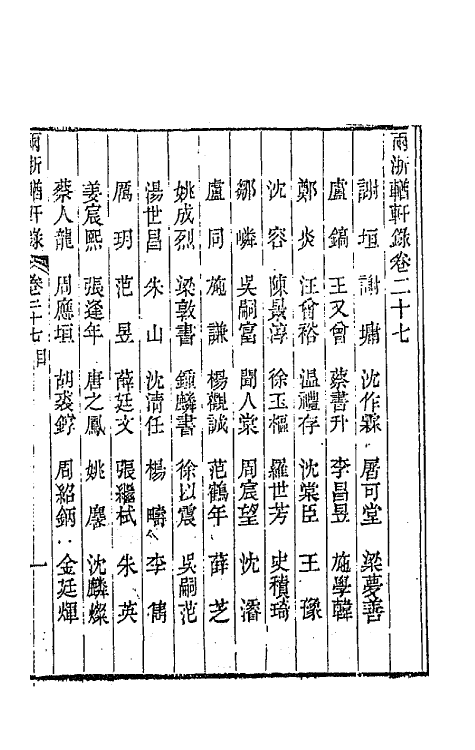 兩浙輶軒錄卷二十七
謝垣 謝墉 沈作霖 屠可堂 梁夢善
盧鎬 王又曾 蔡書升 李昌昱 施學韓
鄭炎 汪曾裕 温禮存 沈棠臣 王豫
沈容 陳景淳 徐玉樞 羅世芳 史積琦
鄒嶙 吳嗣富 聞人棠 周宸望 沈濬
盧同 施謙 楊觀誠 范鶴年 薛芝
姚成烈 梁敦書 鍾麟書 徐以震 吳嗣范
湯世昌 朱山 沈清任 楊疇 李儁
厲玥 范昱 薛廷文 張繼栻 朱英
姜宸熙 張逢年 唐之鳳 姚鏖 沈麟燦
蔡人龍 周應垣 胡裘錞 周紹鈵 金廷煇
兩浙輶軒錄 卷二十七目 一